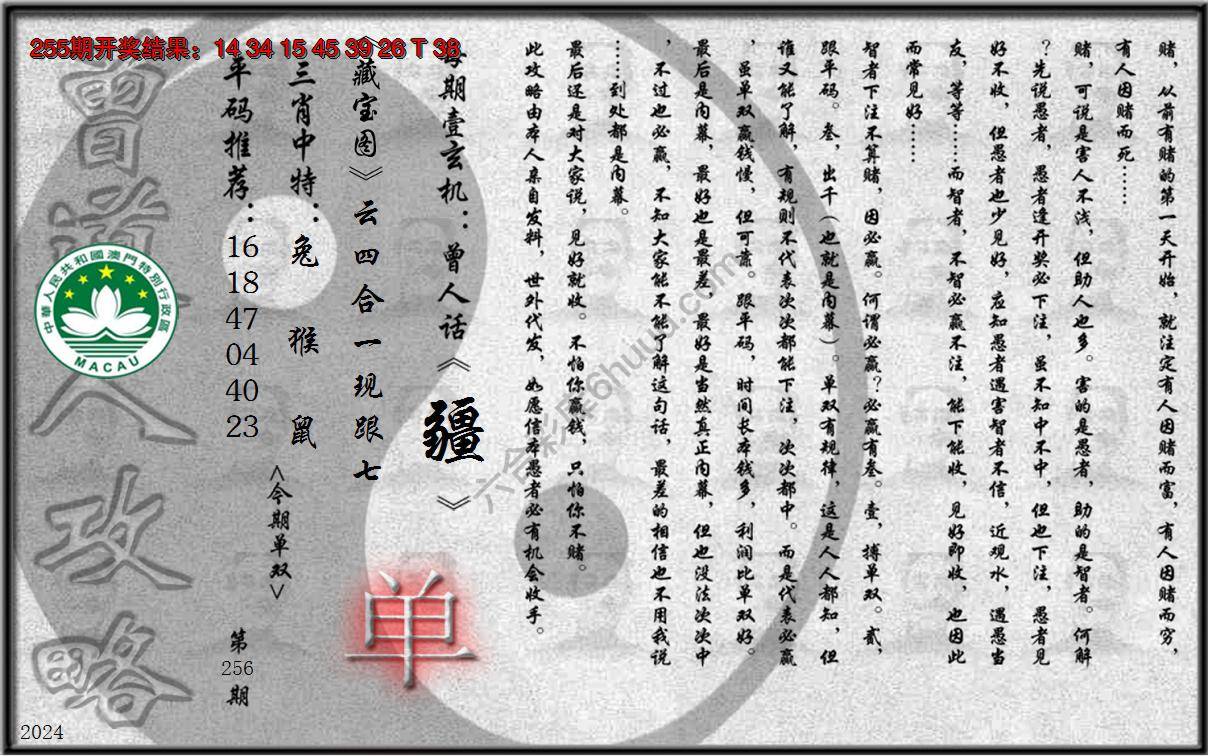 255期开奖结果：14 34 15 45 39 26 T 38
赌，从前有赌的第一天开始，就注定有人因赌而富，有人因赌而穷，
有人因赌而死……
赌，可说是害人不浅，但助人也多。害的是愚者，助的是智者。何解
？先说愚者，愚者逢开奖必下注，虽不知中不中，但也下注，愚者见
好不收，但愚者也少见好，应知愚者遇害智者不信，近观水，遇愚当
友，等等……而智者，不智必赢不注，能下能收，见好即收，也因此
而常见好……
智者下注不算赌，因必赢。何谓必赢？必赢有叁。壹，搏单双。贰，
跟平码。叁，出千（也就是内幕）。单双有规律，这是人人都知，但
谁又能了解，有规则不代表次次都能下注，次次都中。而是代表必赢
，虽单双赢钱慢，但可靠。跟平码，时间长本钱多，利润比单双好。
最后是内幕，最好也是最差，最好是当然真正内幕，但也没法次次中
，不过也必赢，不知大家能不能了解这句话，最差的相信也不用我说
……到处都是内幕。
最后还是对大家说，见好就收。不怕你赢钱，只怕你不赌。
此攻略由本人亲自发料，世外代发，如愿信本愚者必有机会收手。
每期壹玄机：曾人话《疆》
《藏宝图》云四合一现跟七
三肖中特：兔 猴 鼠
平码推荐：
16
18
47
04
40
23
<今期单双>
单
第
256
期
曾道人攻略
中華人民共和國澳門特別行政區
MACAU
六合彩库6huuu.com
2024